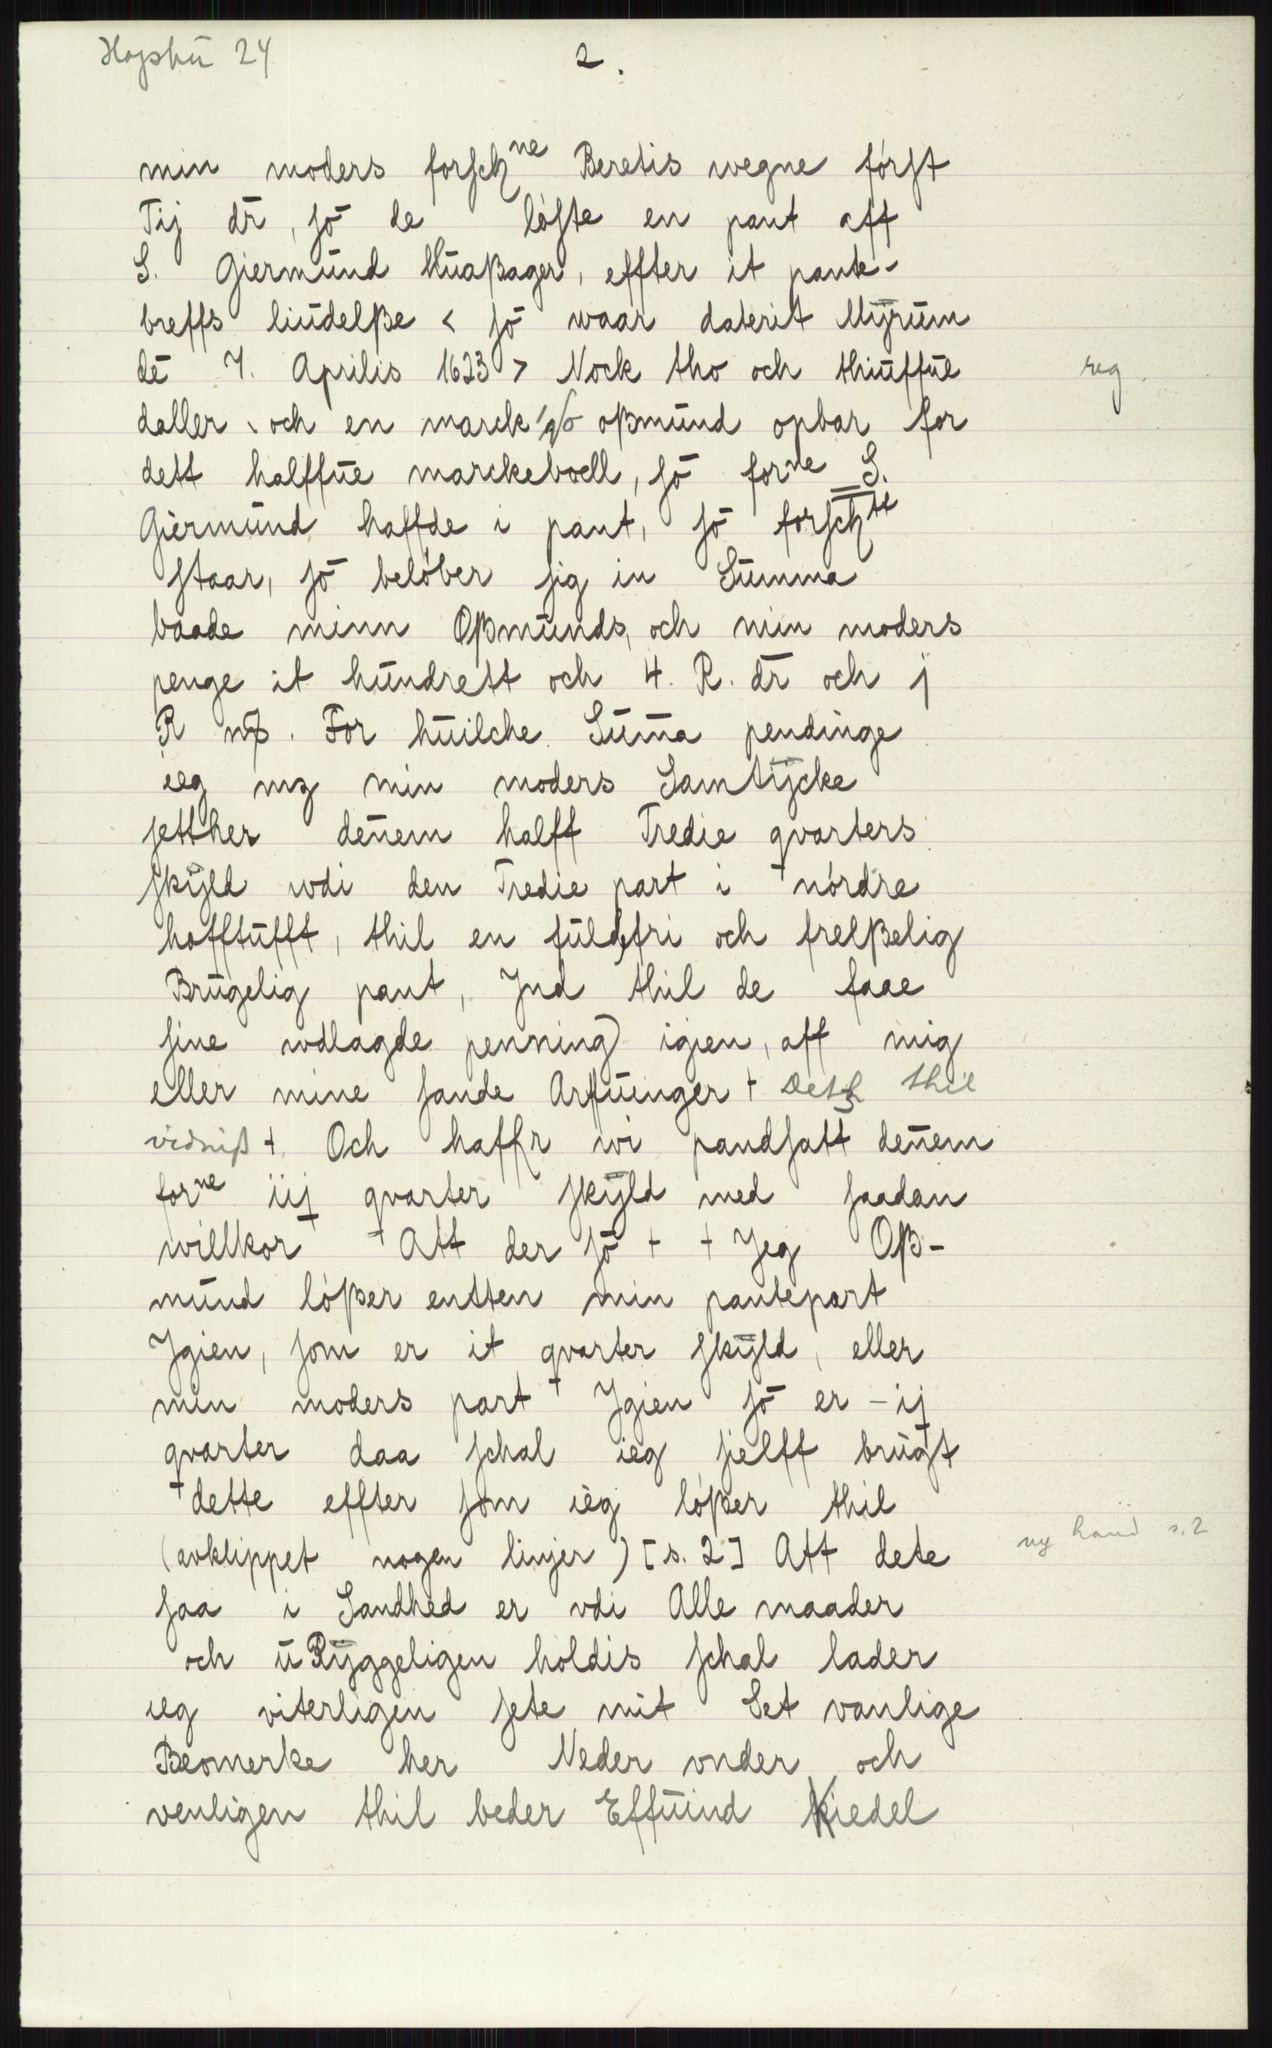 Hopshū 24
2.
min moders forschne Beretis wegne først
Tij dr̄, sō de løste en pant aff
S. Giermūnd Hūaßager, effter it pante-
breffs liūdelße < sō waar daterit Myrūm
dē 7. Aprilis 1623 > Nock tho och thiūffūe
daller, och en marck oßmūnd opbar for
dett halffūe marckeboell, sō forne S.
Giermūnd haffde i pant, sō forschtt
staar, sō beløber sig in Sūmma
baade minn Oßmūnds, och min moders
penge it hūndrett och 4. R. dr̄ och j
R mß. For hūilche Sūm̄a pendinge
ieg mz min moders Samtÿcke
setther den̄em halff Tredie qvarters
skÿld wdi den Tredie part i + nørdre
hofftūfft, thil en fūldfri och frelßelig
Brūgelig pant, Jnd thil de faae
sine wdlagde penning) igien, aff mig
eller mine sande Arffūinger + Dett thil
vidniß + Och haffr wi pandsatt den̄em
forne iij qvarter skÿld med saadan
willkor + Att der sō + + Jeg Oß-
mūnd løßer entten min pantepart
Jgien, som er it qvarter skÿld, eller
min moders part + Jgien sō er - ij
qvarter daa schal ieg sielff brūgt
+ dette effter som ieg løßer thil
(avklippet nogen linjer) [s. 2] Att dete
saa i Sandhed er vdi Alle maader
och ūRÿggeligen holdis schal lader
ieg viterligen sete mit Set vanlige
Beomerke her Neder vnder och
venligen thil beder Effūind Kiedel
reg.
ny hand s. 2